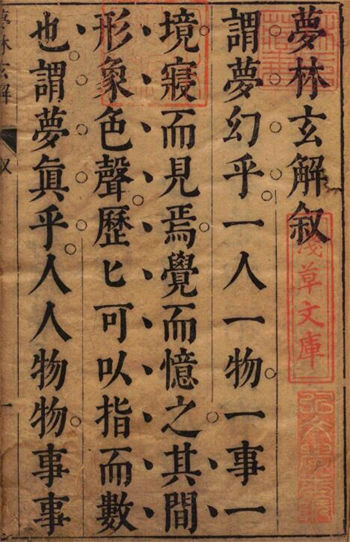 夢林玄解叙
謂夢幻乎一人一物一事一
境寢而見焉覺而憶之其間
形象色聲歷匕可以指而數
也謂夢眞乎人人物物事事
淺草文庫
夢林玄解
叙
一